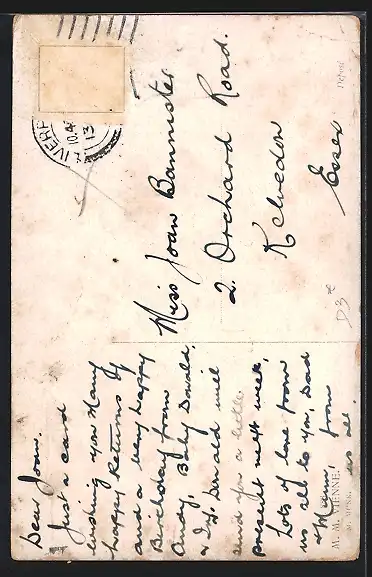 Dear Joan.
Just a card
wishing you Many
happy Returns of
and a very happy
Birthday from
Andy, Baby Donald,
& Ivy. Donald will
send you a little
present next week,
Lots of love from
us all to you, Dad
& Mum from
us all.
Miss Joan Bannister
2. Orchard Road.
Kelvedon
Essex
LIVERP
10.45
13
D3 €
M. M. VIENNE.
M. MUNK
Déposé